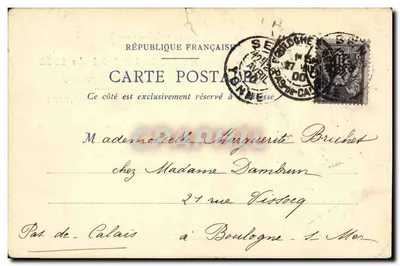 RÉPUBLIQUE FRANÇAISE
CARTE POSTALE
Ce côté est exclusivement réservé à l'adresse
SE
YONNE
BOULOGNE
PAS-DE-CALAIS
Mademoiselle Marguerite Brichet
chez Madame Dambrun
21 rue Vissocq
Pas-de-Calais à Boulogne-s-Mer